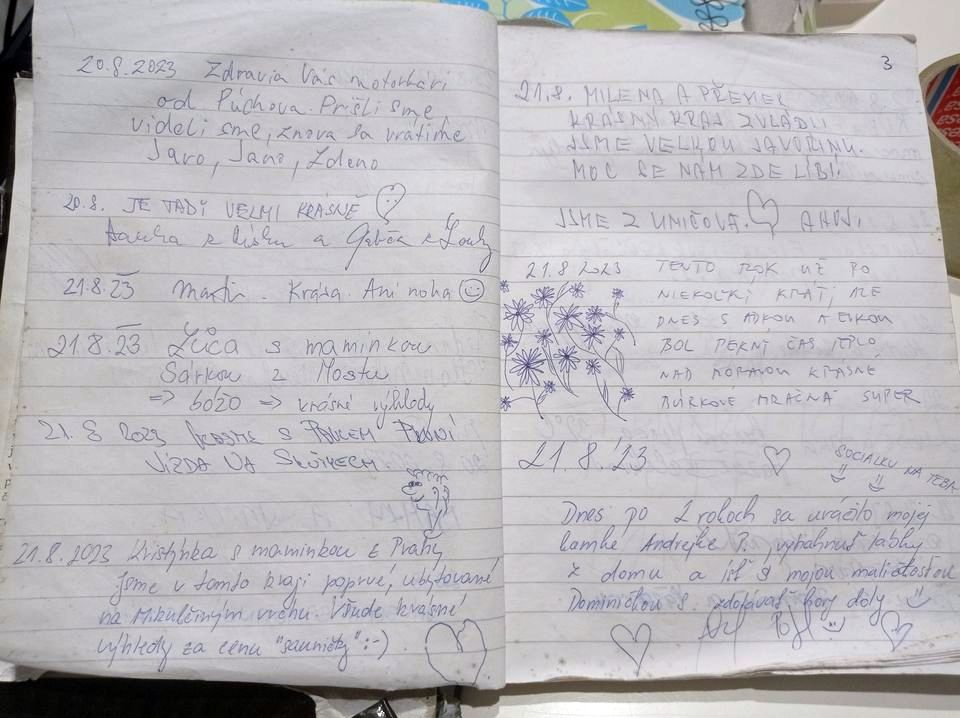 20.8.2023 Zdravia Vás motorkári
od Púchova. Prišli sme,
videli sme, znova sa vrátime
Jaro, Jano, Zdeno
20.8. JE TADI VELMI KRÁSNĚ
a
21.8.23 Martin. Krása. Ani noha
21.8.23 s maminkou
Šárkou z Mostu
=> 6030 => krásné výhledy
21. 8 2023 S PAVLEM PRVNÍ
JÍZDA NA
21.8.2023 Kristýnka s maminkou z Prahy
Jsme v tomto kraji poprvé, ubytované
na Mikulčiným vrchu. Všude krásné
výhledy za cenu "sauničky" :-)
3
21.8. MILENA A PŘEMEK
KRÁSNÝ KRAJ ZVLÁDLI
JSME VELKOU JAVOŘINU.
MOC SE NÁM ZDE LÍBÍ.
JSME Z UNIČOVA. AHOJ.
21.8 2023 TENTO ROK UŽ PO
NIEKOĽKÍ KRÁT, ALE
DNES S ADKOU A
BOL PEKNÝ ČAS TEPLO
NAD MORAVOU KRÁSNE
BÚRKOVÉ MRAČNÁ SUPER
21.8.'23
SOCIALKU NA TEBA
Dnes po 2 rokoch sa uráčilo mojej
kamke Andrejke P. vytiahnuť labky
z domu a ísť s mojou maličkosťou
Dominičkou S. zdolávať hory doly